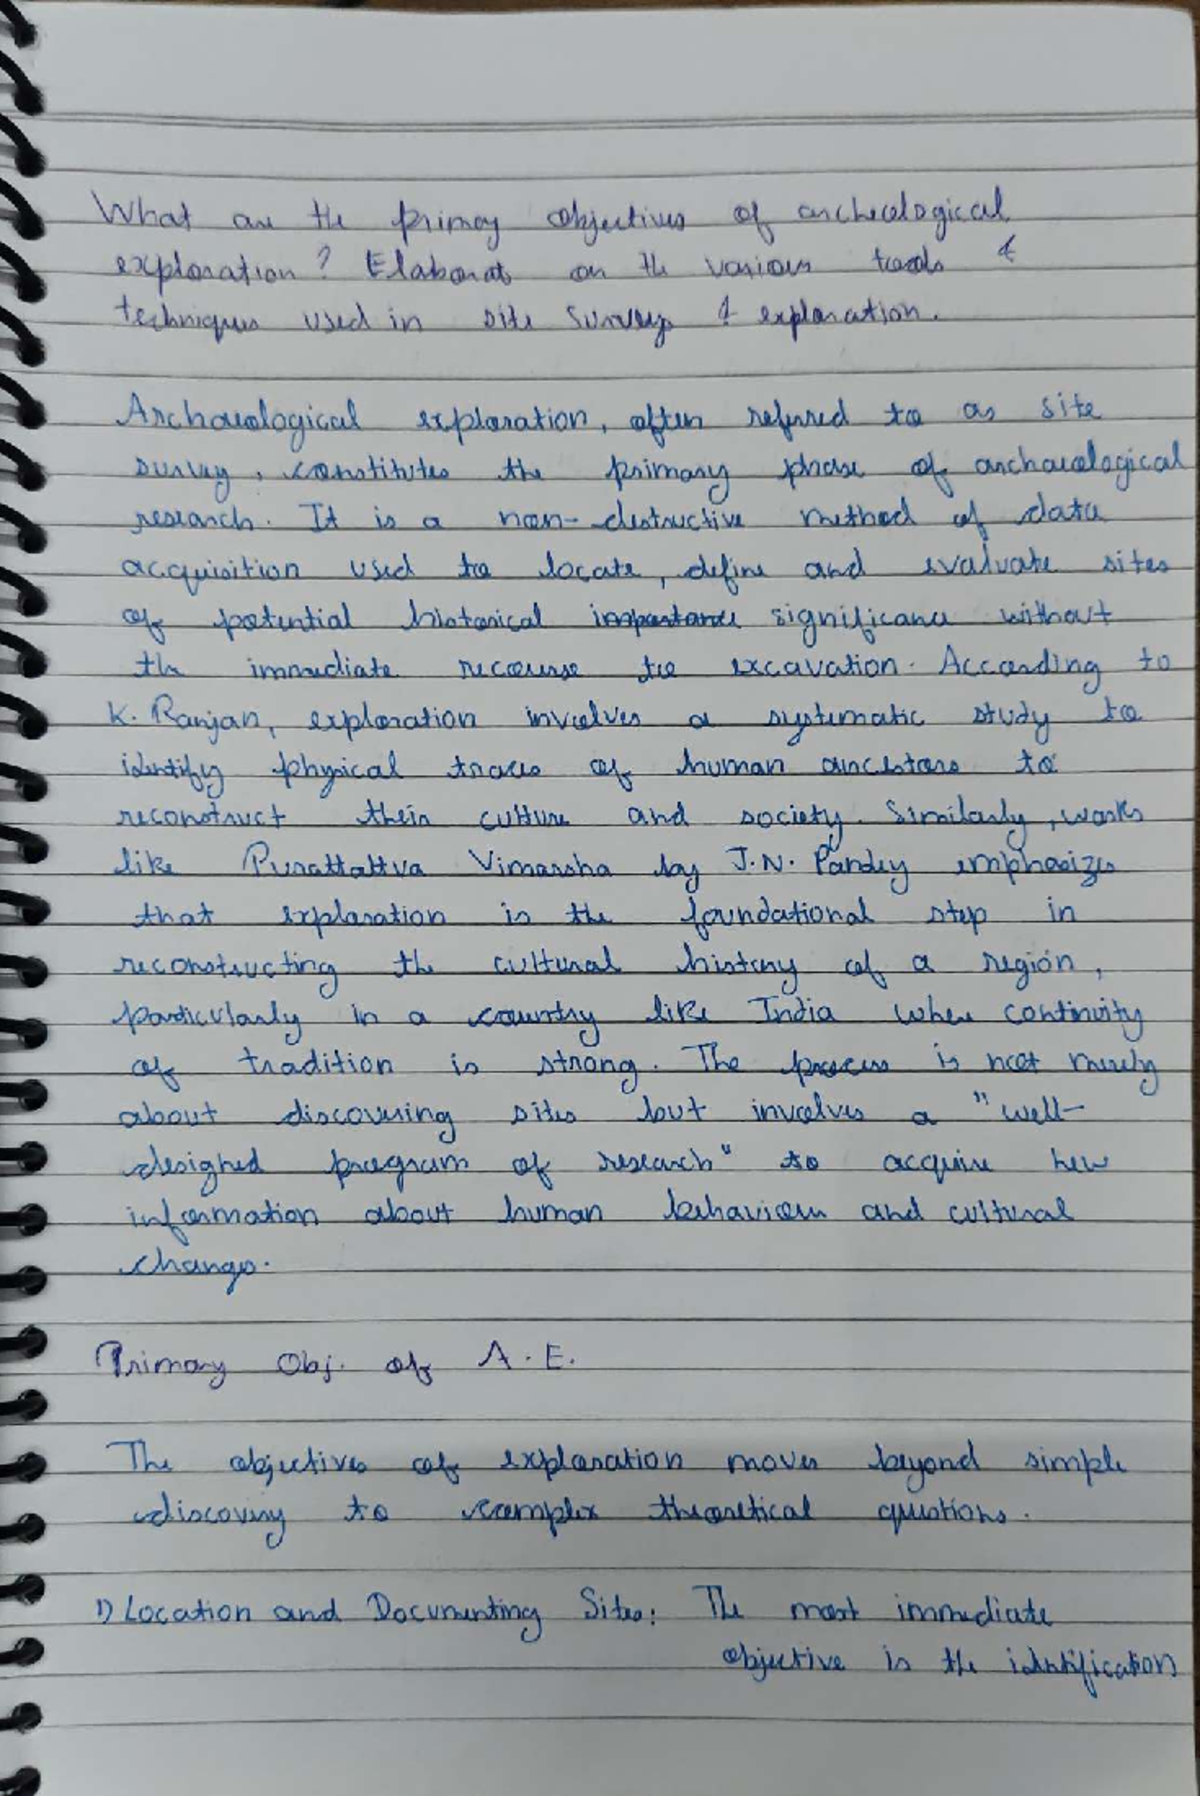 What are the primary objectives of archaeological
exploration? Elaborate on the various tools &
techniques used in site survey & exploration.
Archaeological exploration, often referred to as site
survey, constitutes the primary phase of archaeological
research. It is a non-destructive method of data
acquisition used to locate, define and evaluate sites
of potential historical importance significance without
the immediate recourse to excavation. According to
K. Ranjan, exploration involves a systematic study to
identify physical traces of human ancestors to
reconstruct their culture and society. Similarly, works
like Purattattva Vimarsha by J.N. Pandey emphasizes
that exploration is the foundational step in
reconstructing the cultural history of a region,
particularly in a country like India where continuity
of tradition is strong. The process is not merely
about discovering sites but involves a "well-
designed program of research" to acquire new
information about human behaviour and cultural
change.
Primary Obj. of A.E.
The objectives of exploration moves beyond simple
discovery to complex theoretical questions.
1) Location and Documenting Sites: The most immediate
objective is the identification